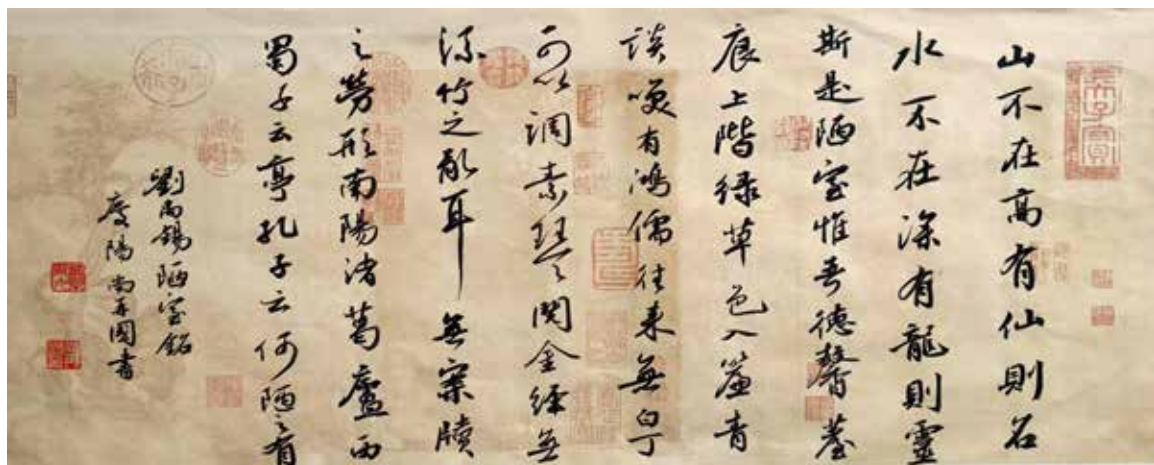 山不在高有仙則名
水不在深有龍則靈
斯是陋室惟吾德馨苔
痕上階绿草色入簾青
談笑有鴻儒往来無白丁
可以調素琴閱金經無
絲竹之亂耳無案牘
之勞形南陽诸葛廬西
蜀子云亭孔子云何陋之有
劉禹錫陋室銘
慶陽 尚再國書